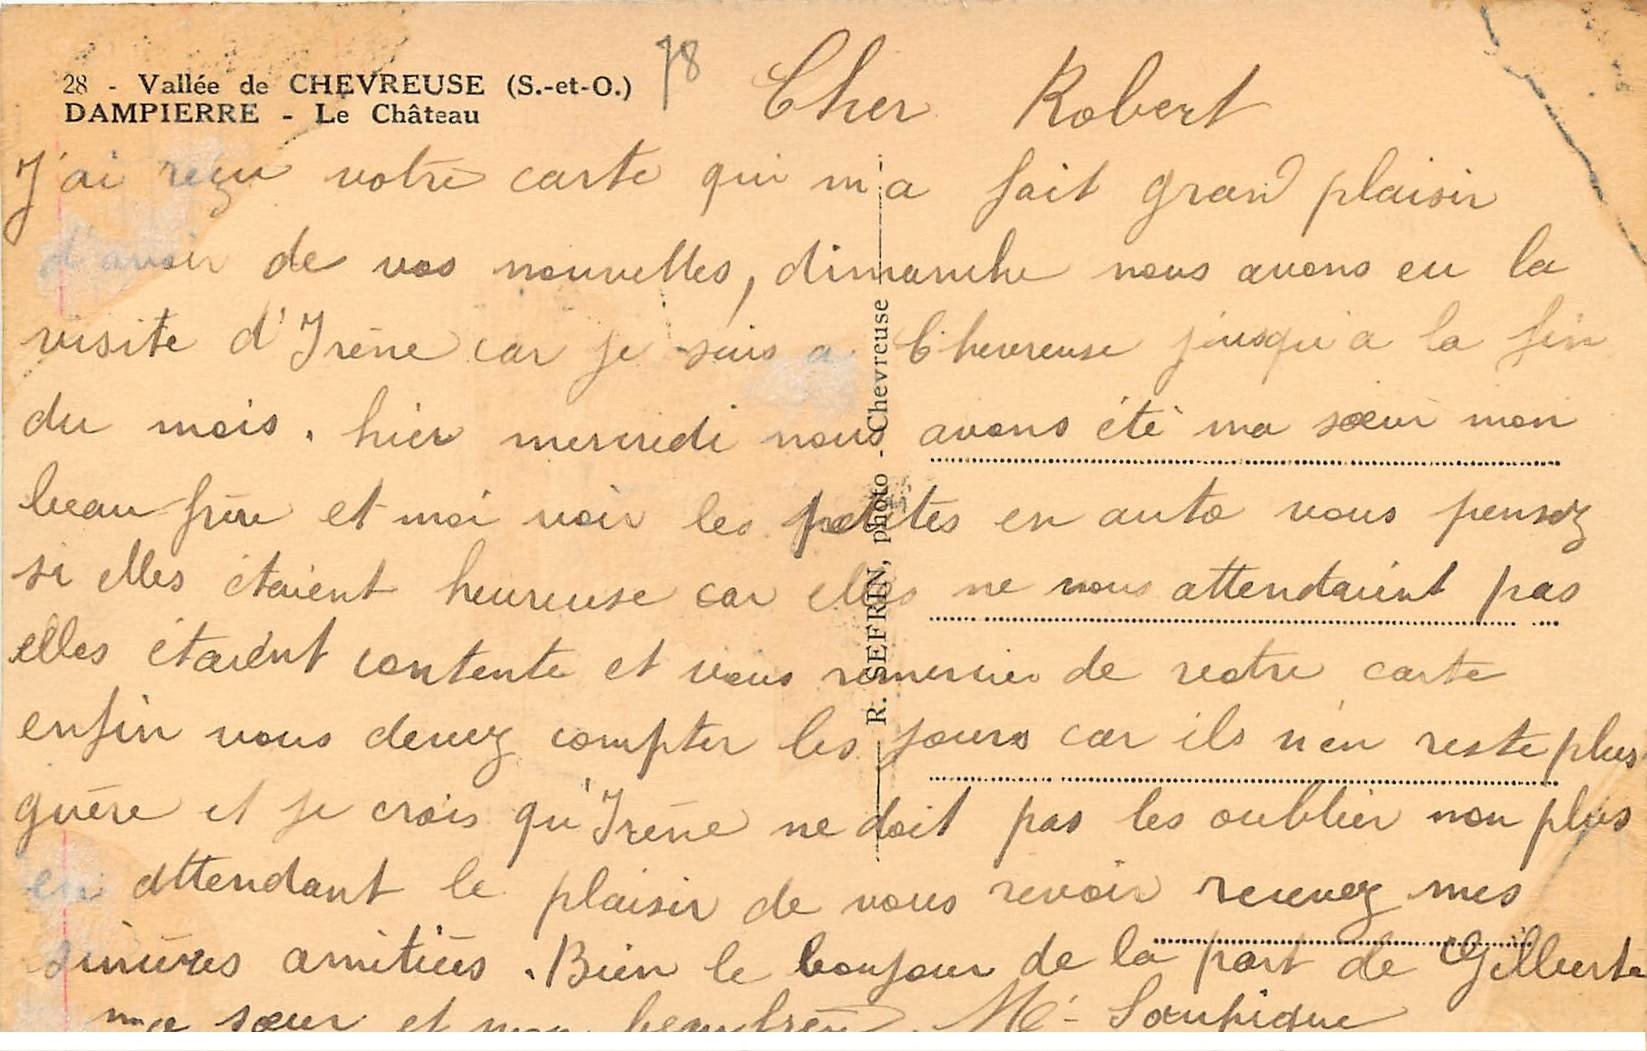 28 - Vallée de CHEVREUSE (S.-et-O.)
DAMPIERRE - Le Château
78
Cher Robert
J'ai reçu votre carte qui m'a fait grand plaisir
d'avoir de vos nouvelles, dimanche nous avons eu la
visite d'Irène car je suis a Chevreuse jusqu'a la fin
du mois. hier mercredi nous avons été ma sœur mon
beau frère et moi voir les petites en auto vous pensez
si elles étaient heureuse car elles ne nous attendaient pas
elles étaient contente et vous remercier de votre carte
enfin vous devez compter les jours car ils n'en reste plus
guère et je crois qu'Irène ne doit pas les oublier non plus
en attendant le plaisir de vous revoir recevez mes
sincères amitiées. Bien le bonjour de la part de Gilberte
ma sœur et mon beau frère. Me Soupique
R. SEFRIN, photo - Chevreuse